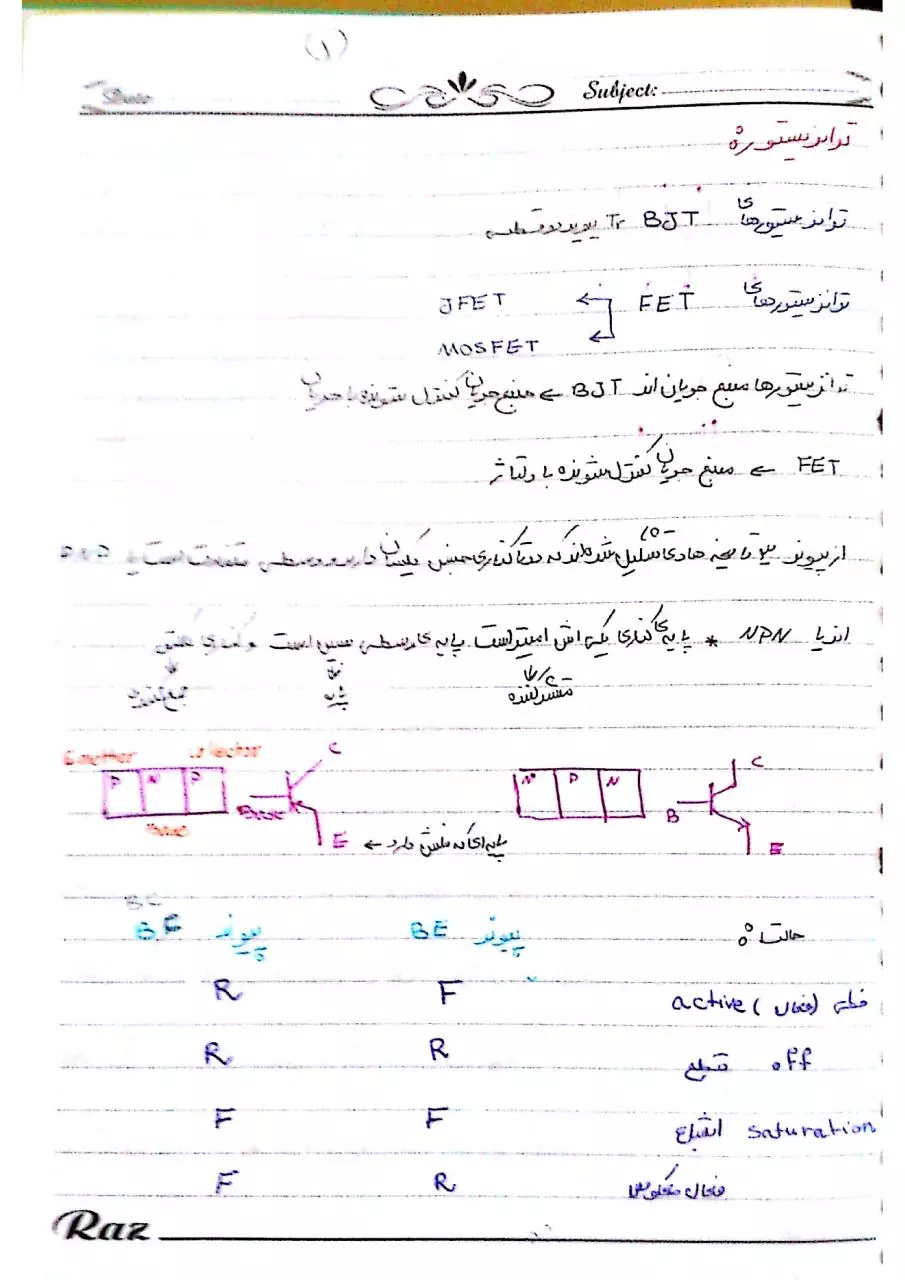 ۱
Date
Subject:
ترانزیستور:
ترانزیستورهای BJT Tr پیوند دوقطبی
ترانزیستورهای FET ← JFET
← MOSFET
ترانزیستورها منبع جریان اند BJT ← منبع جریان کنترل شونده با جریان
FET ← منبع جریان کنترل شونده با ولتاژ
از پیوند سه تا نیمه هادی تشکیل شده اند که دو تا کناری جنس یکسان دارند و وسطی متفاوت است یا PNP
اند یا NPN * پایه های کناری یکی اش امیتر است پایه ی وسطی بیس است و
منتشر کننده
پایه
جمع کننده
Emitter Collector C
P N P Base
Base E ← پایه ای که فلش دارد
N P N B C E
حالت: پیوند BE پیوند BC
BC
خطی (فعال) active F R
off قطع R R
saturation اشباع F F
فعال معکوس R F
Raz